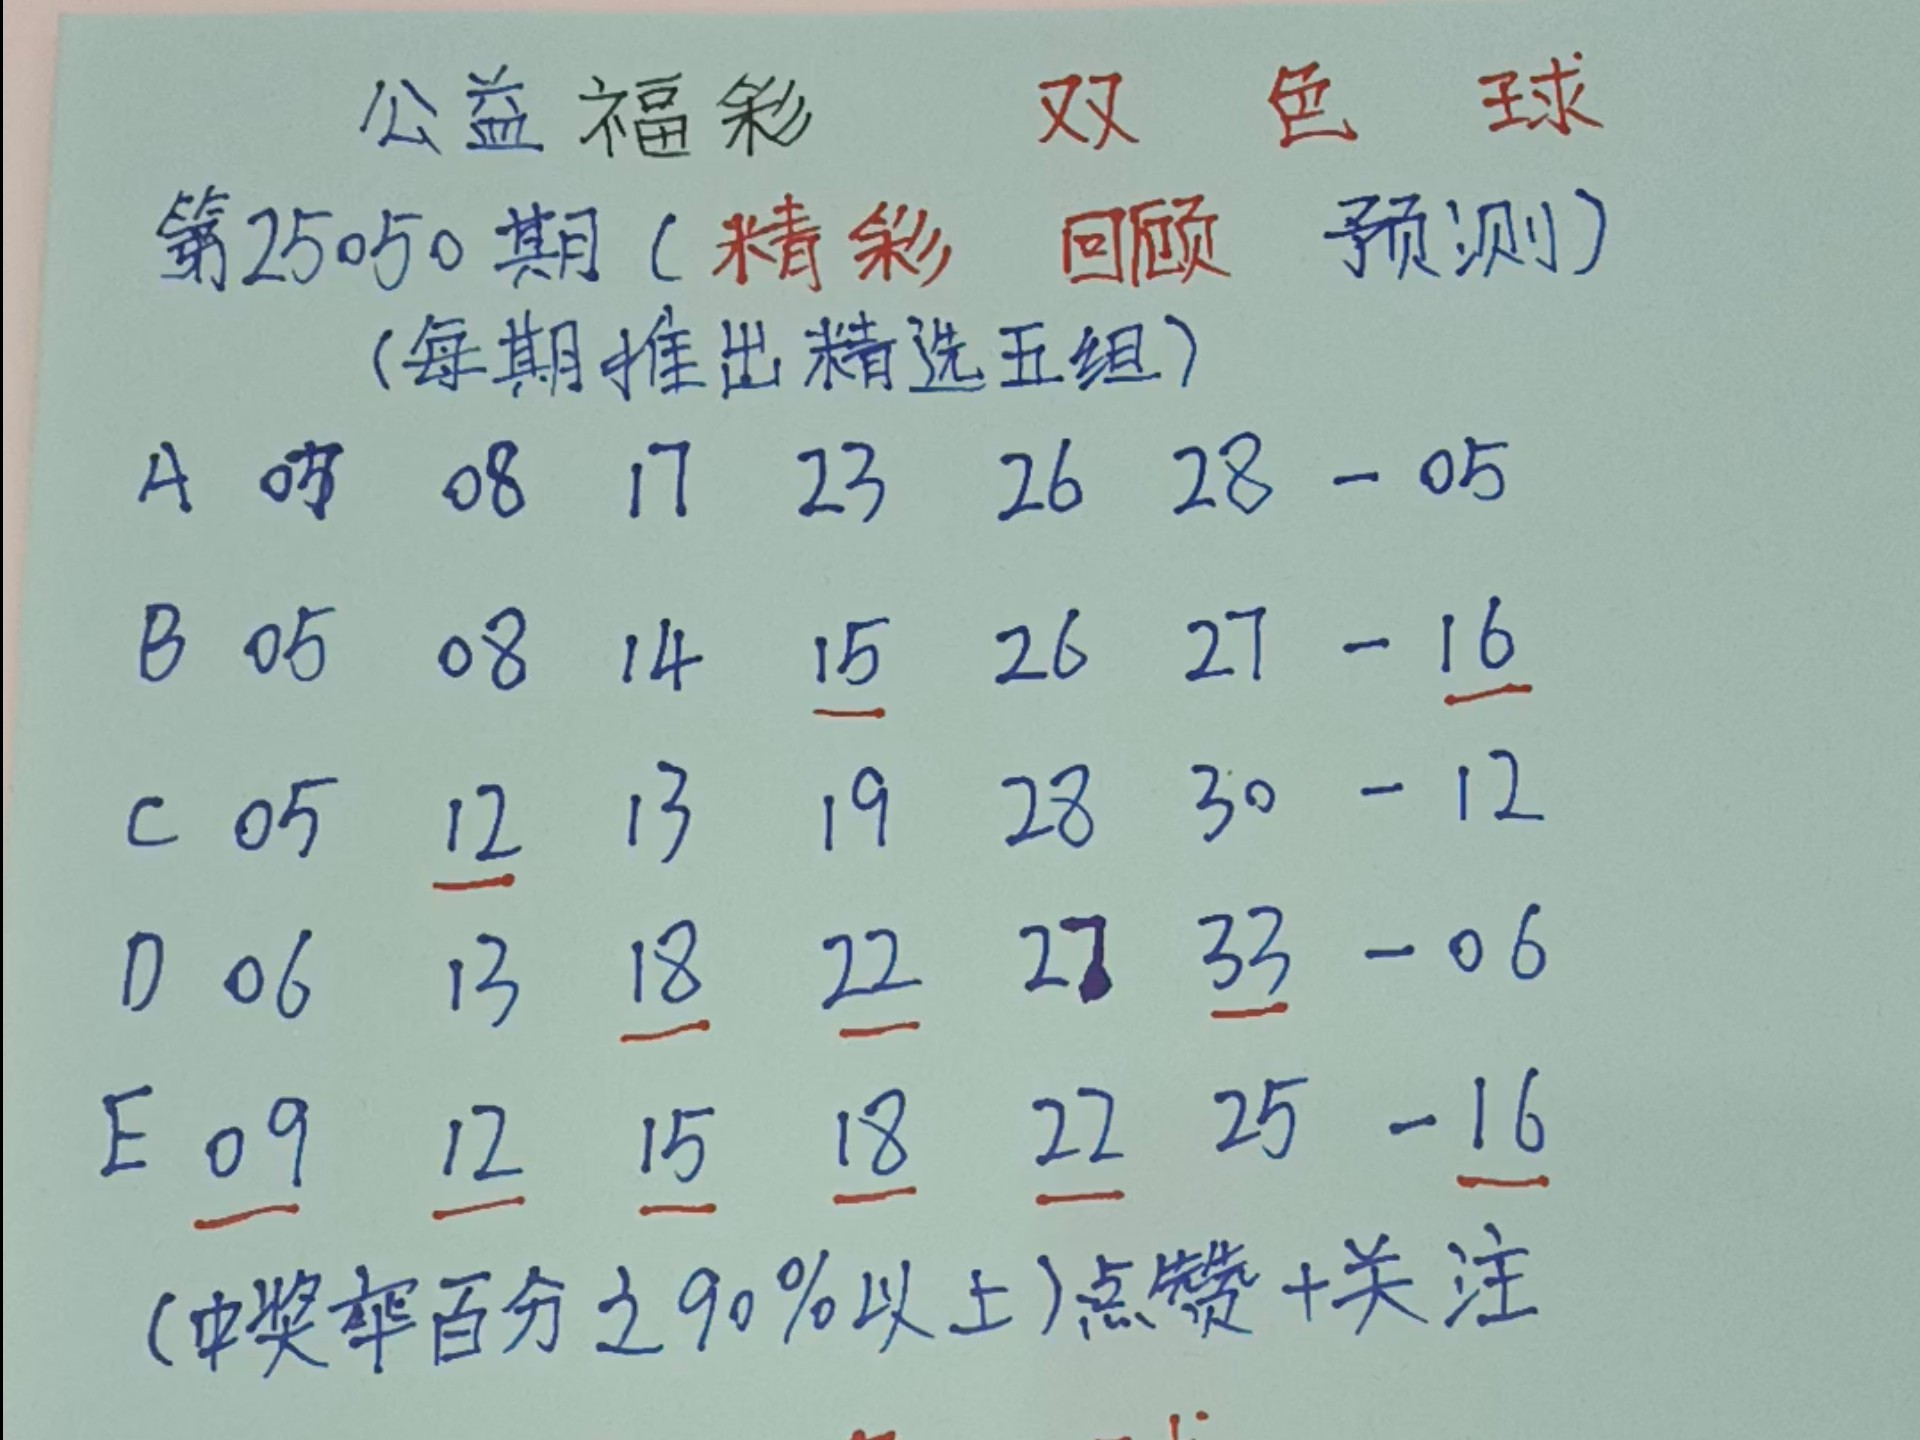 公益福彩 双色球
第25050期(精彩 回顾 预测)
(每期推出精选五组)
A 08 17 23 26 28 - 05
B 05 08 14 15 26 27 - 16
C 05 12 13 19 28 30 - 12
D 06 13 18 22 27 33 - 06
E 09 12 15 18 22 25 - 16
(中奖率百分之90%以上)点赞+关注